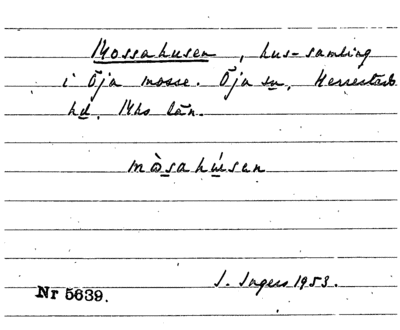 Mossahusen, hus-samling
i Öja mosse. Öja sn, Herrestads
hd. Mhs län.
mòsahúsen
I. Ingers 1953.
Nr 5639.